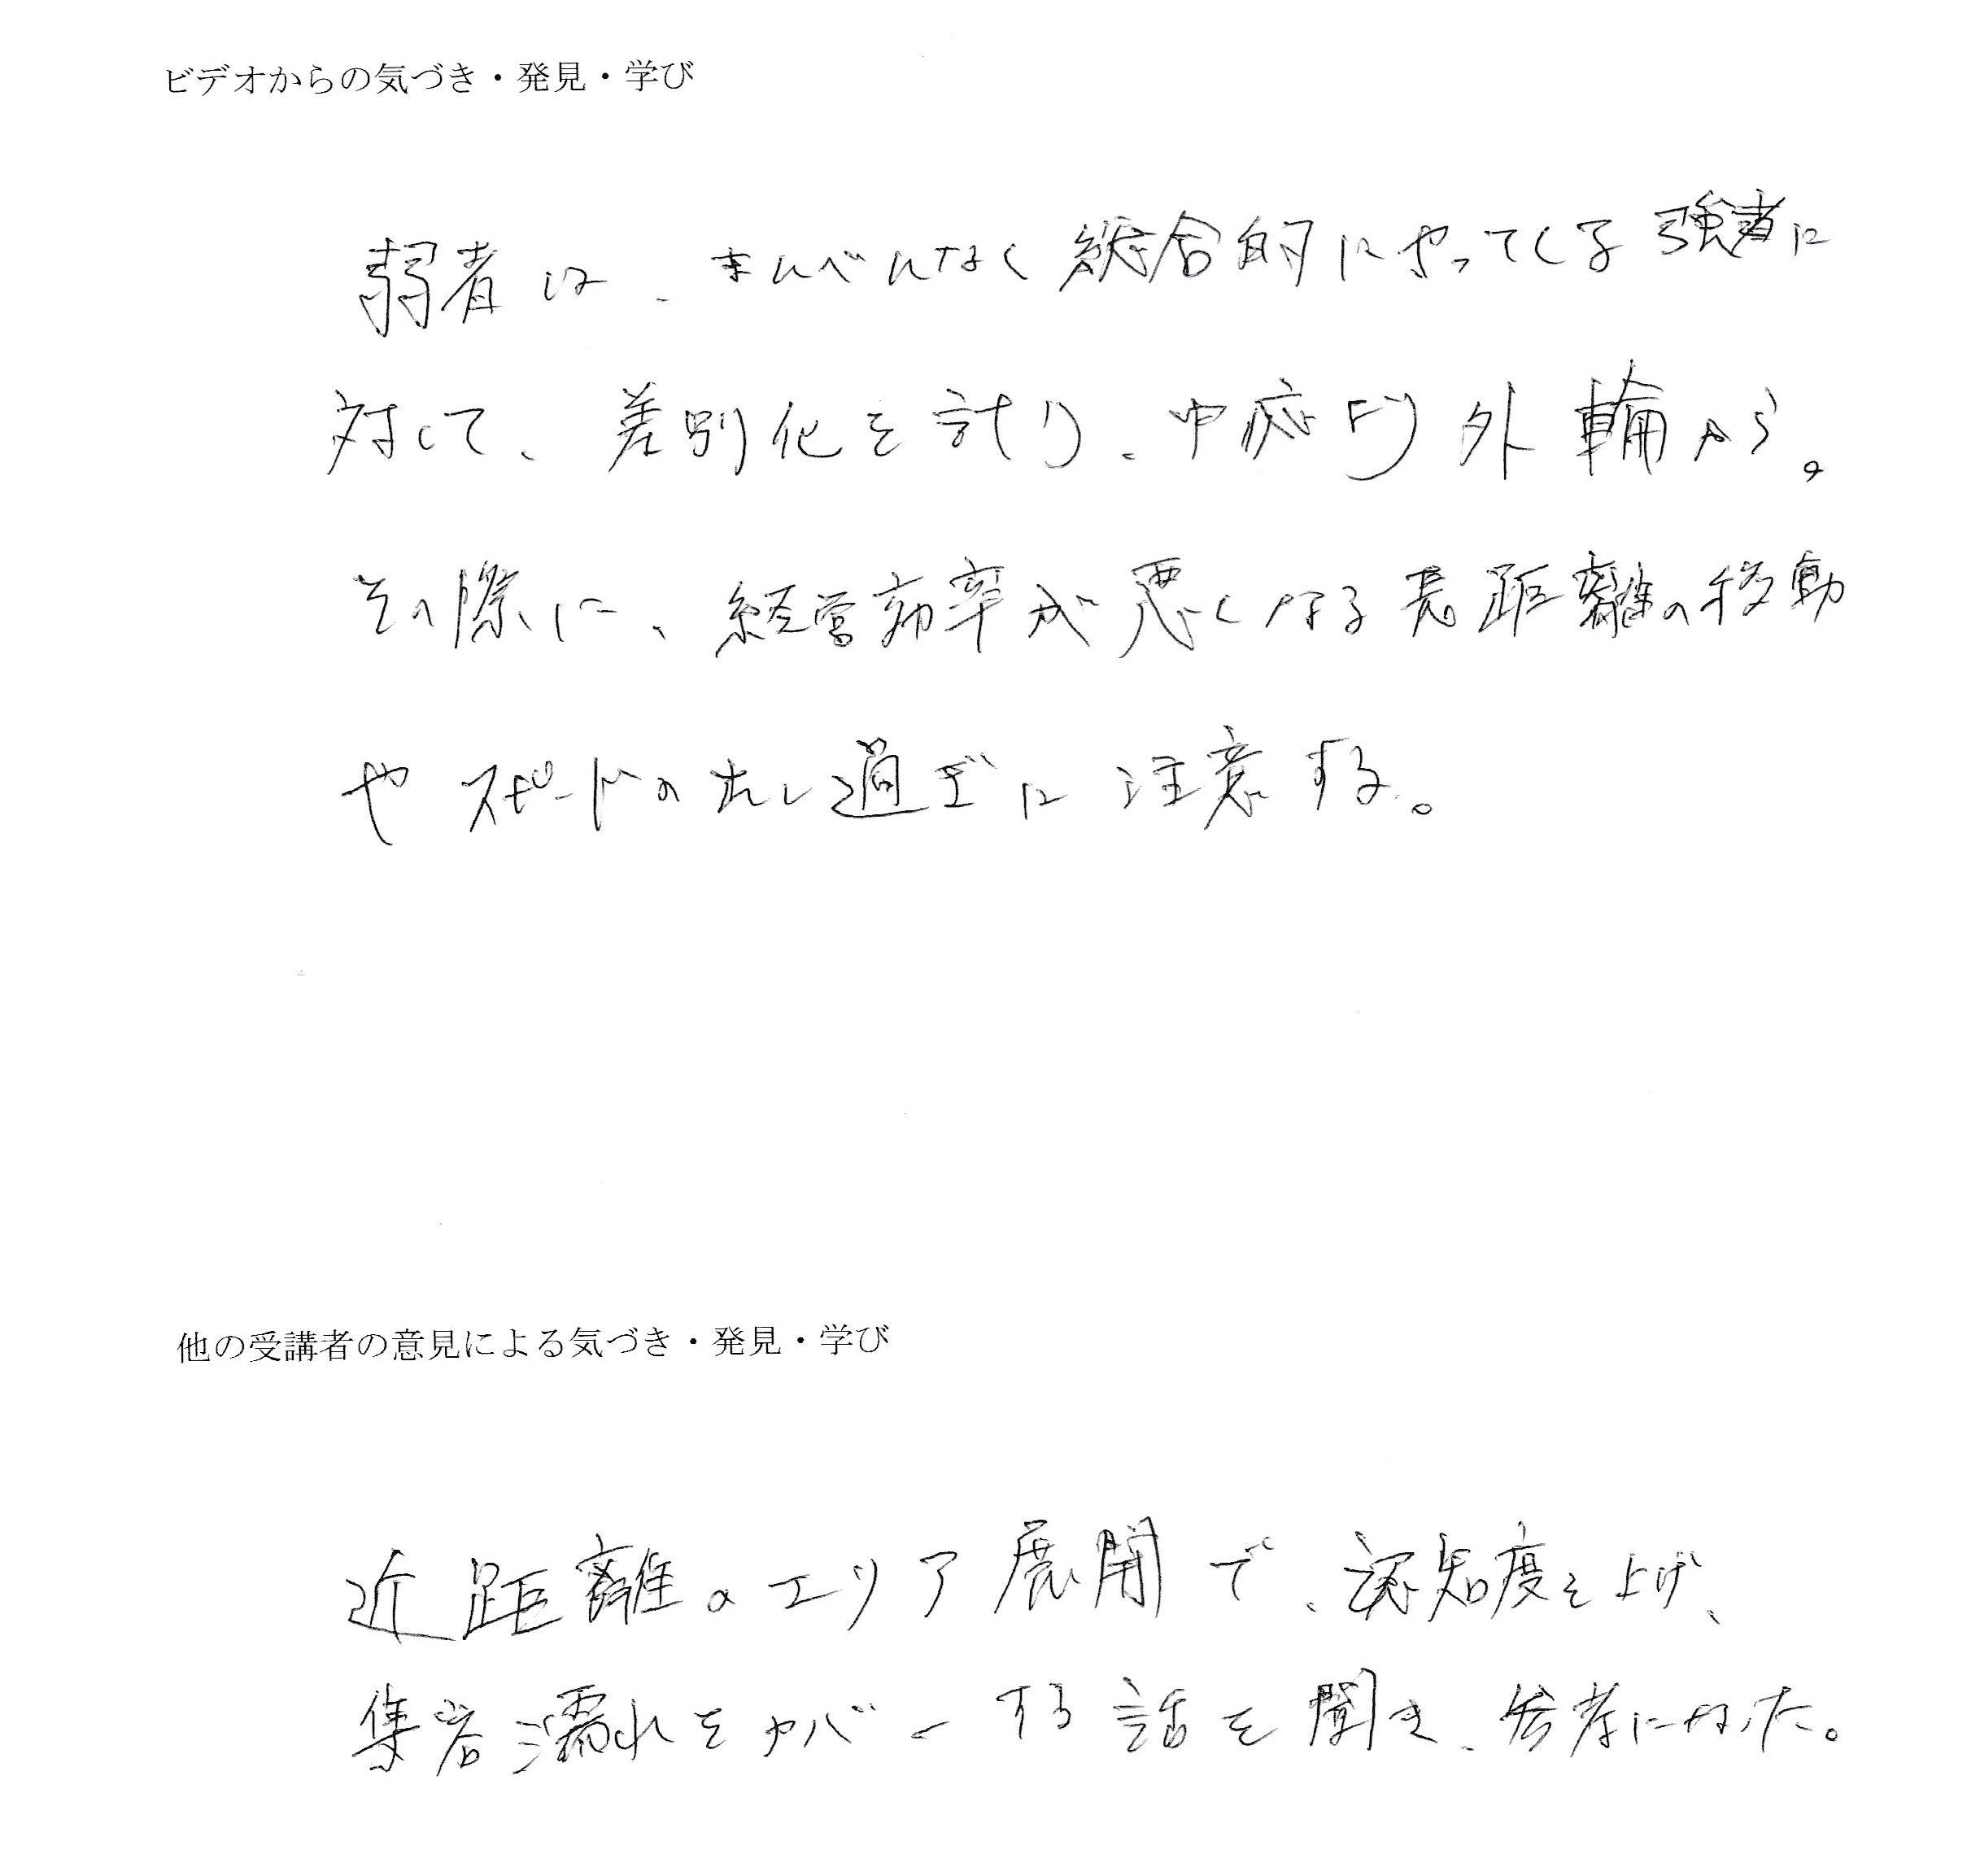 ビデオからの気づき・発見・学び
弱者は、まんべんなく総合的にやってくる強者に
対して、差別化を計り、中心より外輪から。
その際に、経営効率が悪くなる長距離の移動
やスピードの出し過ぎに注意する。
他の受講者の意見による気づき・発見・学び
近距離のエリア展開で、認知度を上げ、
集客濡れをカバーする話を聞き、参考になった。